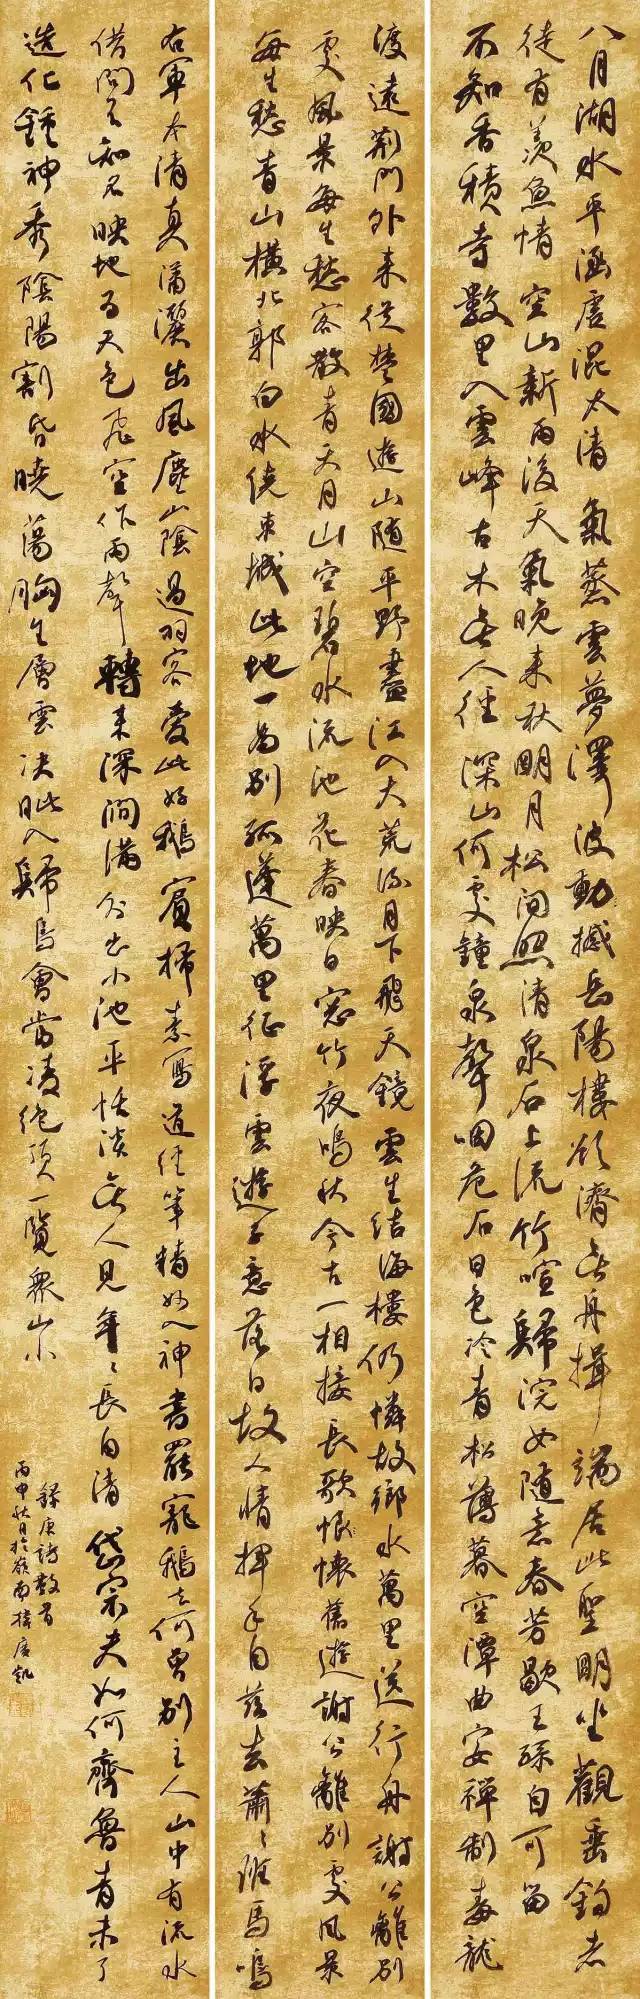 八月湖水平涵虛混太清氣蒸雲夢澤波動撼岳陽樓欲濟無舟揖端居此聖明坐觀垂釣者
徒有羨魚情空山新雨後天氣晚來秋明月松間照清泉石上流竹喧歸浣女随意春芳歇王孫自可留
不知香積寺數里入雲峰古木無人徑深山何處鐘泉聲咽危石日色冷青松薄暮空潭曲安禪制毒龍
渡遠荊門外來從楚國遊山随平野盡江入大荒流月下飛天鏡雲生結海樓仍憐故鄉水萬里送行舟謝公離別
處風景每生愁客散青天月山空碧水流池花春映日窓竹夜鳴秋今古一相接長歌恨懷舊遊謝公離別處風景
每生愁青山橫北郭白水繞東城此地一為別孤蓬萬里征浮雲遊子意落日故人情揮手自茲去蕭〻班馬鳴
右軍本清真瀟灑出風塵山陰過羽客愛此好鵝賓掃素寫道經筆精妙入神書罷籠鵝去何曾別主人山中有流水
借問不知名映地為天色飛空作雨聲轉來深澗滿分出小池平恬淡無人見年〻長自清岱宗夫如何齊魯青未了
造化鍾神秀陰陽割昏曉蕩胸生層雲決眥入歸鳥會當凌絕頂一覽眾山小
錄唐詩數首
丙申秋日於嶺南